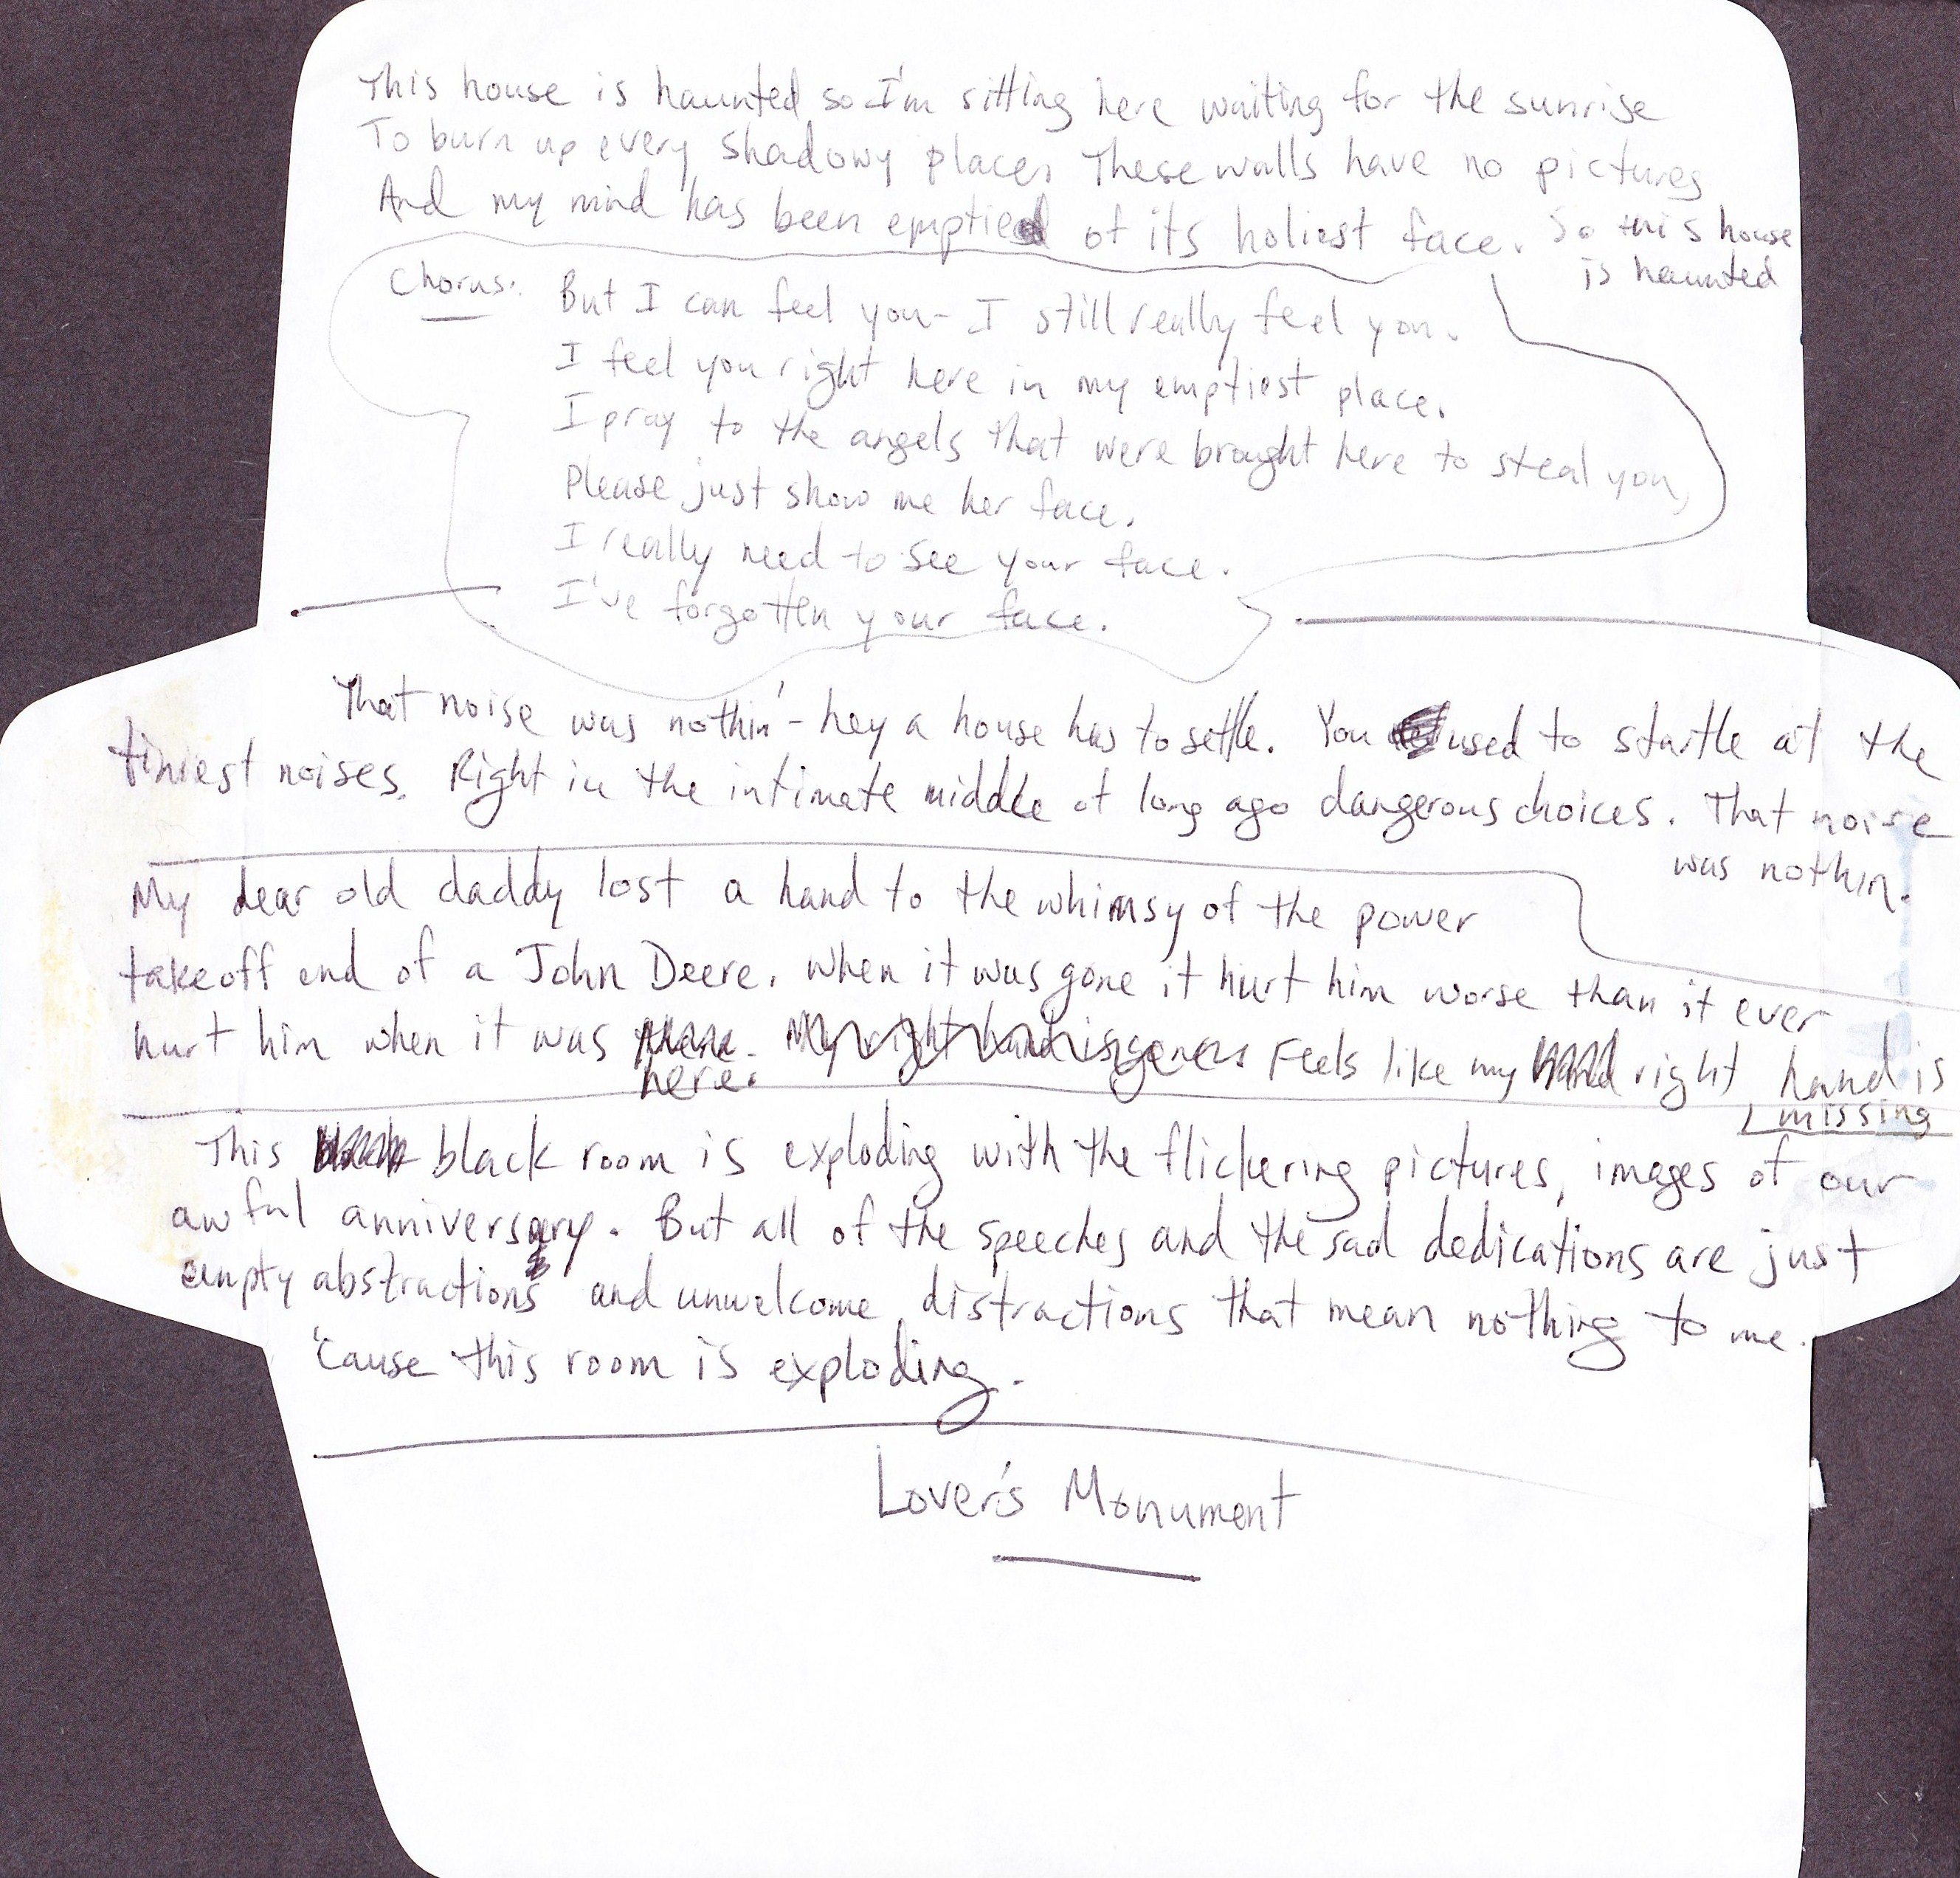 This house is haunted so I'm sitting here waiting for the sunrise
To burn up every shadowy place. These walls have no pictures
And my mind has been emptied of its holiest face. So this house
is haunted
Chorus: But I can feel you - I still really feel you.
I feel you right here in my emptiest place.
I pray to the angels that were brought here to steal you,
Please just show me her face.
I really need to see your face.
I've forgotten your face.
That noise was nothin' - hey a house has to settle. You used to startle at the
tiniest noises. Right in the intimate middle of long ago dangerous choices. That noise
was nothin.
My dear old daddy lost a hand to the whimsy of the power
takeoff end of a John Deere. When it was gone it hurt him worse than it ever
hurt him when it was there. My right hand is Feels like my hand right hand is
here.
missing
This black room is exploding with the flickering pictures, images of our
awful anniversary. But all of the speeches and the sad dedications are just
empty abstractions and unwelcome distractions that mean nothing to me.
'Cause this room is exploding.
Lover's Monument